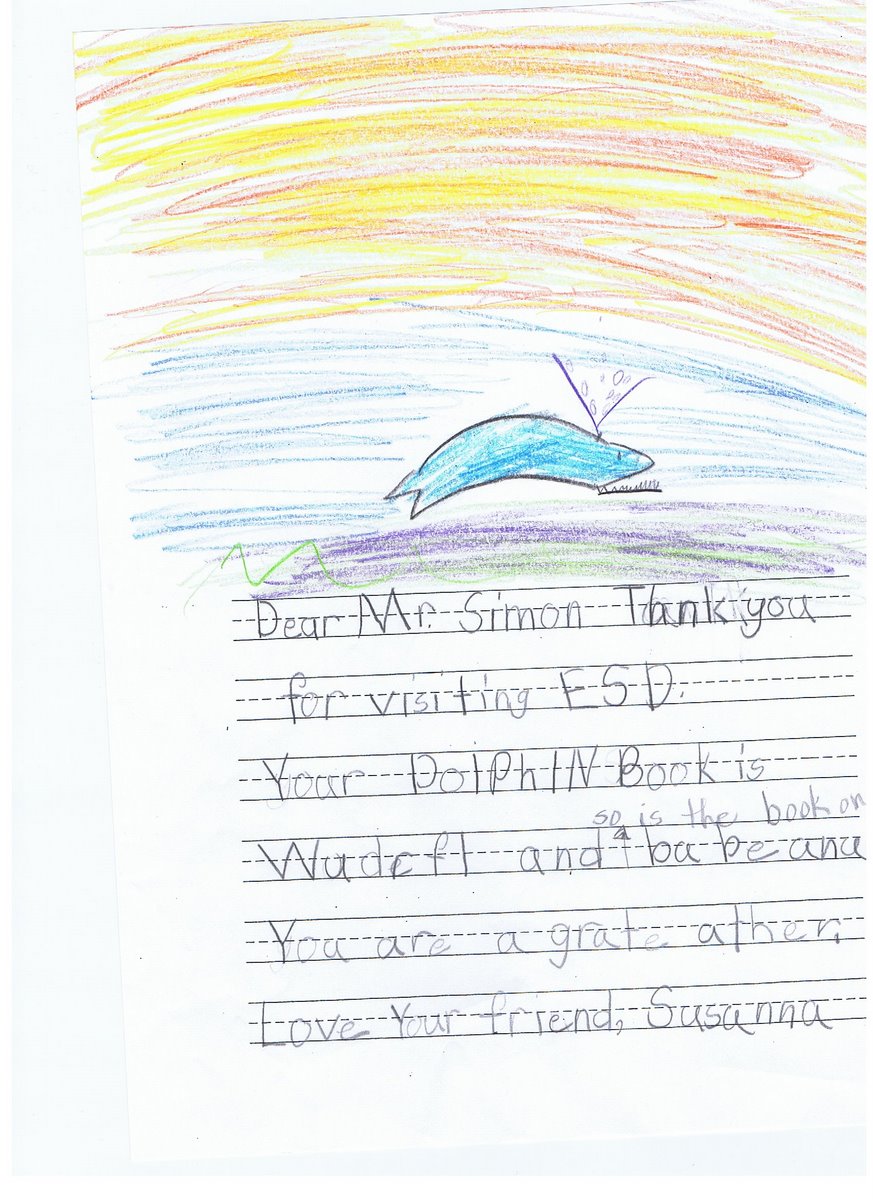 Dear Mr. Simon Thank you
for visiting ESD.
Your DolPhIN Book is
so is the book on
Wudefl and ba be ana
You are a grate ather.
Love Your friend, Susanna